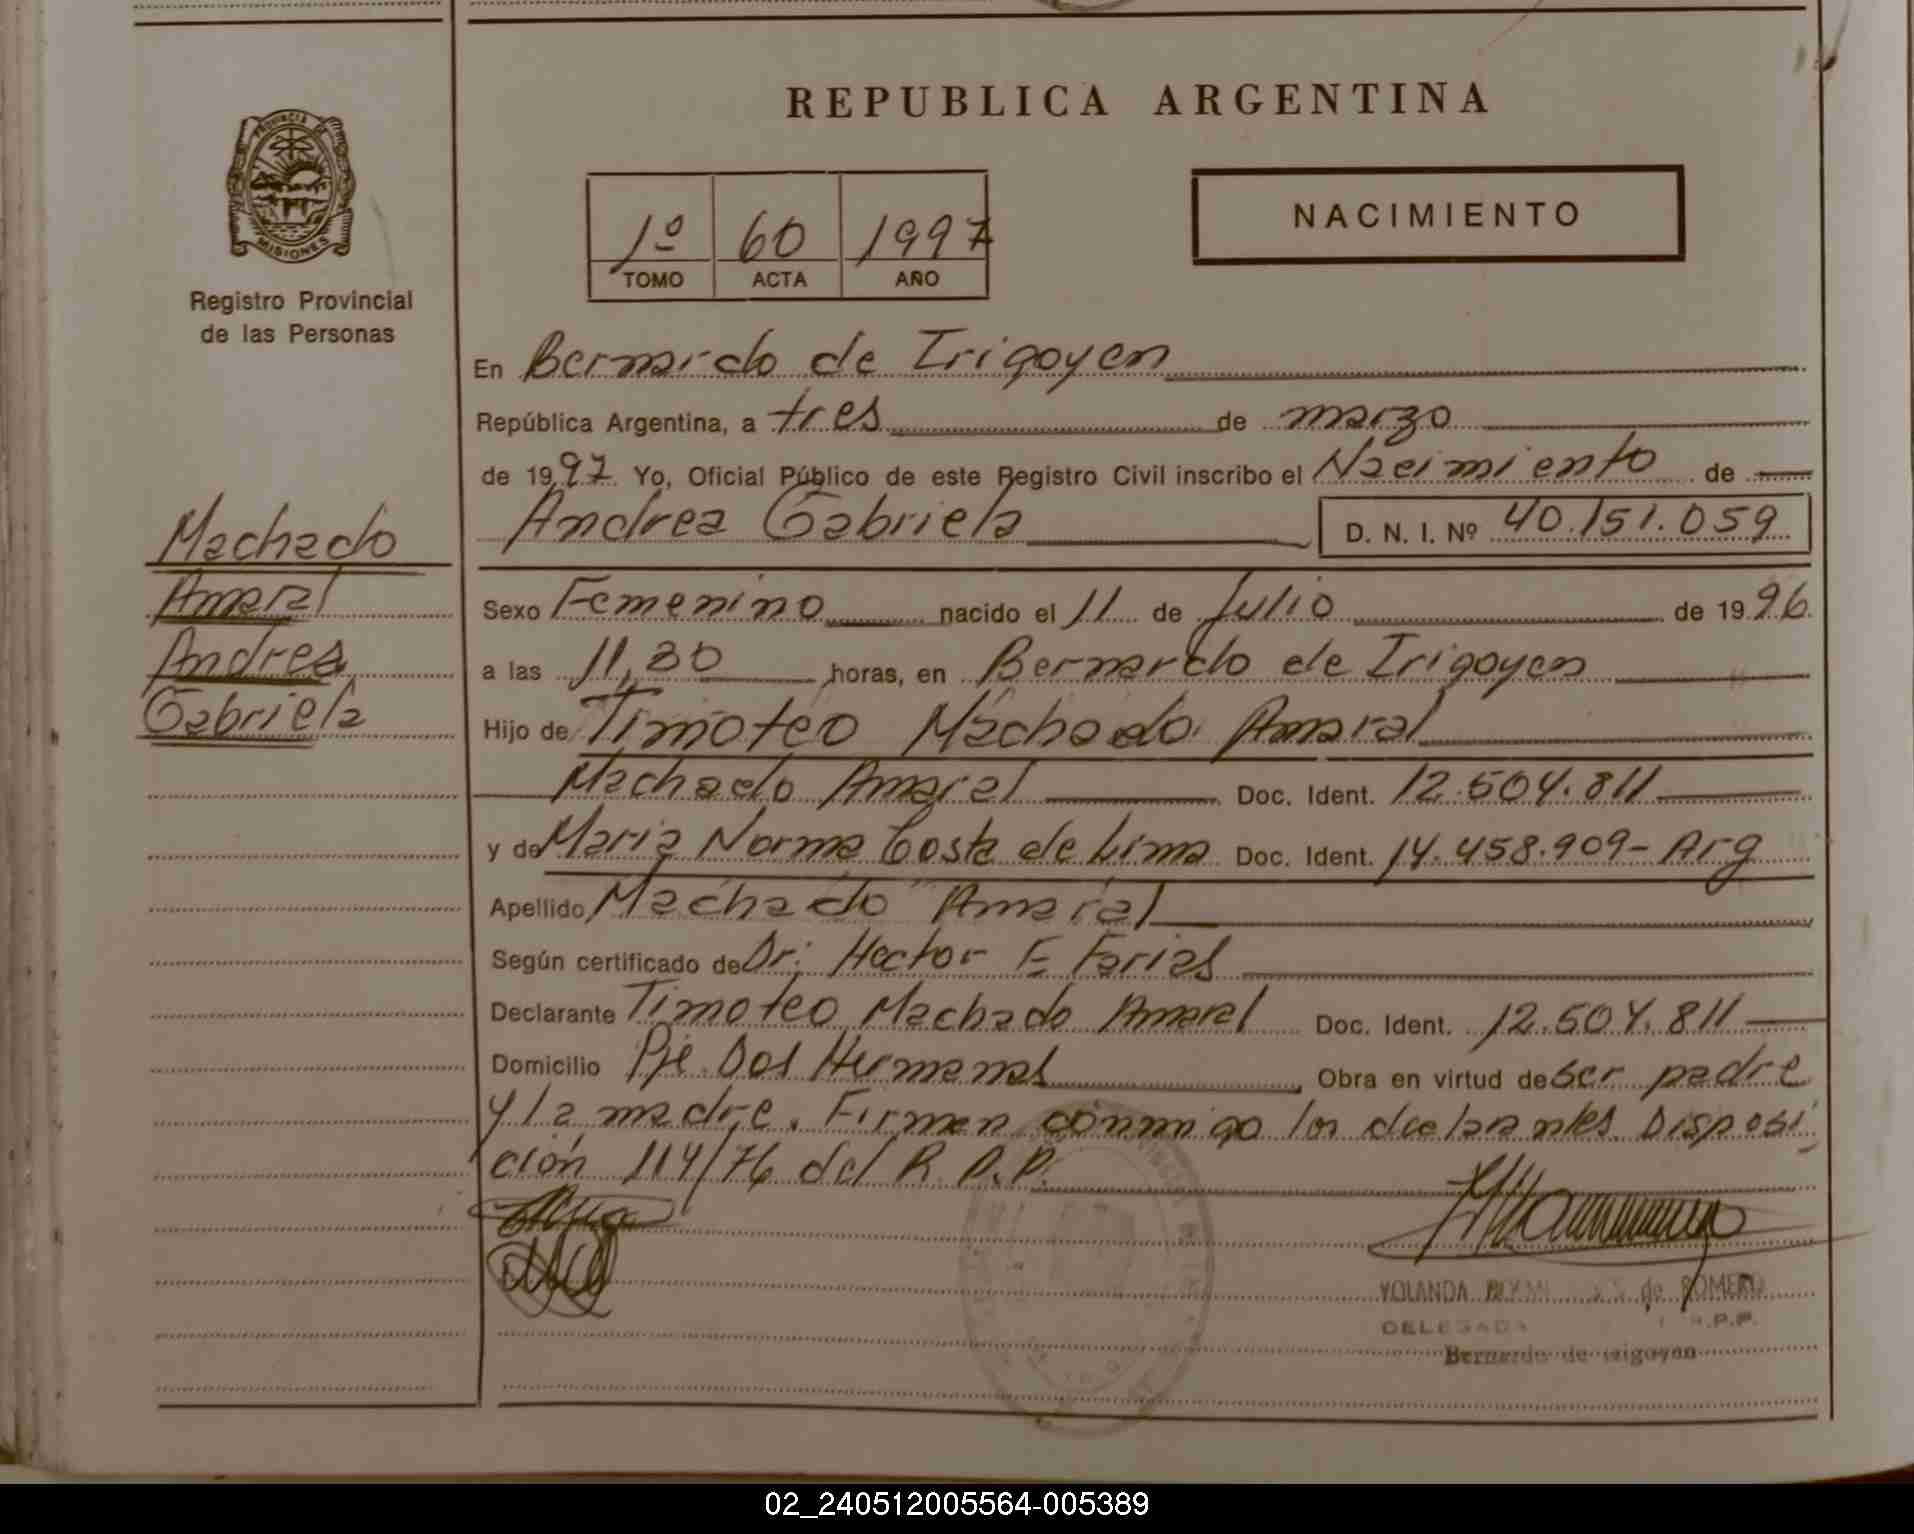 REPUBLICA ARGENTINA
PROVINCIA DE
MISIONES
Registro Provincial
de las Personas
1º 60 1997
TOMO ACTA AÑO
NACIMIENTO
En Bernardo de Irigoyen
República Argentina, a tres de marzo
de 1997 Yo, Oficial Público de este Registro Civil inscribo el Nacimiento de
Andrea Gabriela D. N. I. Nº 40.151.059
Machado
Amaral
Andrea
Gabriela
Sexo Femenino nacido el 11 de Julio de 1996
a las 11,30 horas, en Bernardo de Irigoyen
Hijo de Timoteo Machado Amaral
Machado Amaral Doc. Ident. 12.504.811
y de Maria Norma Costa de Lima Doc. Ident. 14.458.909- Arg
Apellido Machado Amaral
Según certificado de Dr: Hector F Farias
Declarante Timoteo Machado Amaral Doc. Ident. 12.504.811
Domicilio Pje. Dos Hermanas Obra en virtud de ser padre
y la madre. Firman conmigo los declarantes. Disposi
ción 114/76 del R.P.P.
YOLANDA de ROMERO
DELEGADA R.P.P.
Bernardo de Irigoyen
02_240512005564-005389